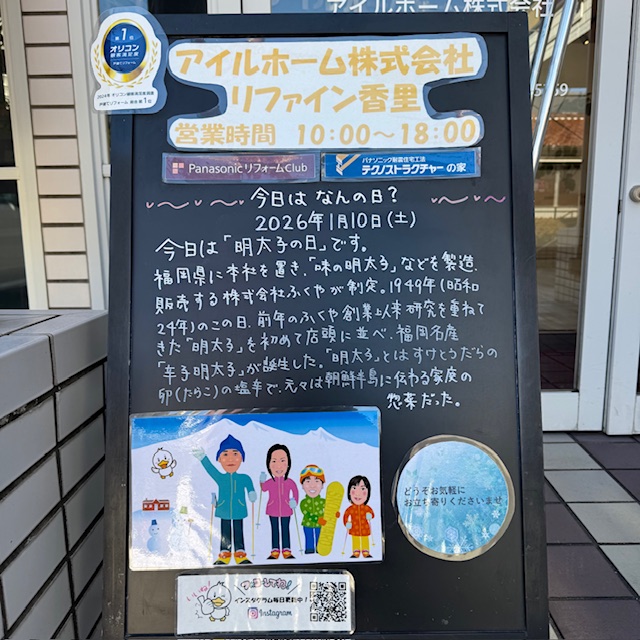 アイルホーム株式会社
第1位
オリコン
顧客満足度
アイルホーム株式会社
リファイン香里
営業時間 10:00〜18:00
Panasonic リフォームClub
パナソニック耐震住宅工法
テクノストラクチャーの家
今日はなんの日?
2026年1月10日(土)
今日は「明太子の日」です。
福岡県に本社を置き、「味の明太子」などを製造、
販売する株式会社ふくやが制定。1949年(昭和
24年)のこの日、前年のふくや創業以来研究を重ねて
きた「明太子」を初めて店頭に並べ、福岡名産
「辛子明太子」が誕生した。「明太子」とはすけとうだらの
卵(たらこ)の塩辛で、元々は朝鮮半島に伝わる家庭の
惣菜だった。
どうぞお気軽に
お立ち寄りくださいませ
インスタグラム毎日更新中!
Instagram